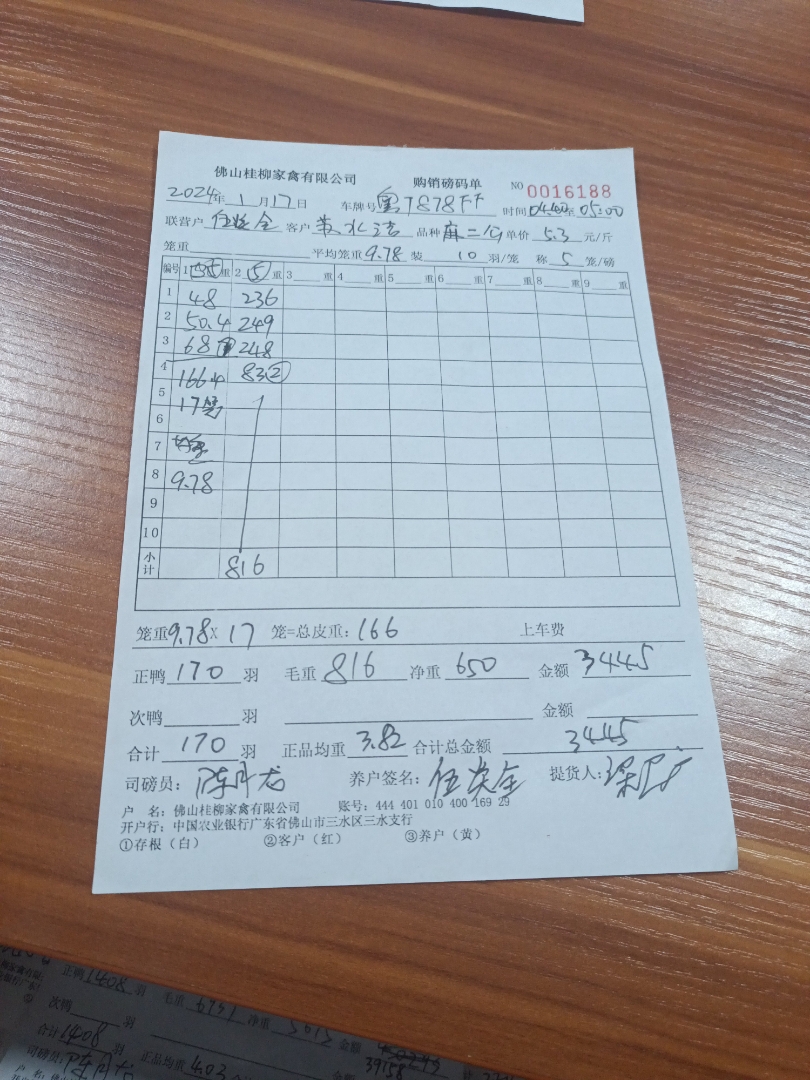 佛山桂柳家禽有限公司 购销磅码单 NO 0016188
2024年 1 月 17 日 车牌号 粤T878FF 时间 0440至 05:00
联营户 客户 品种 麻二 单价 5.3 元/斤
笼重 平均笼重 9.78 装 10 羽/笼 称 5 笼/磅
编号 1 重 2 ⑤ 重 3 重 4 重 5 重 6 重 7 重 8 重 9 重
1 48 236
2 50.4 249
3 68 248
4 166.4 83②
5 17
6
7
8 9.78
9
10
小计 816
笼重 9.78 X 17 笼=总皮重: 166 上车费
正鸭 170 羽 毛重 816 净重 650 金额 3445
次鸭 羽 金额
合计 170 羽 正品均重 3.82 合计总金额 3445
司磅员: 陈 龙 养户签名: 伍 全 提货人:
户 名: 佛山桂柳家禽有限公司 账号: 444 401 010 400 169 29
开户行: 中国农业银行广东省佛山市三水区三水支行
①存根（白） ②客户（红） ③养户（黄）
正鸭 1408 羽 毛重 净重 金额
次鸭 羽
合计 1408 羽 正品均重 4.03
司磅员: 39158